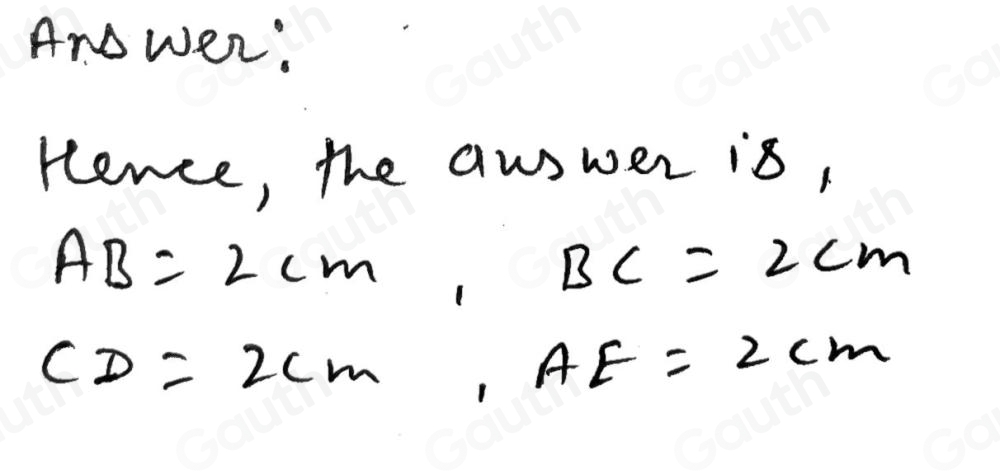 Answer:
Hence, the answer is,
AB = 2cm , BC = 2cm
CD = 2cm , AE = 2cm